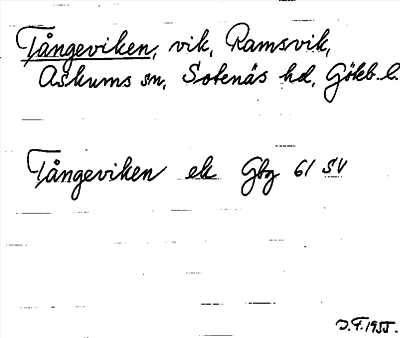 Tångeviken, vik, Ramsvik,
Askums sn, Sotenäs hd, Göteb. l.
Tångeviken ek Gbg 61 SV
J.F. 1955.